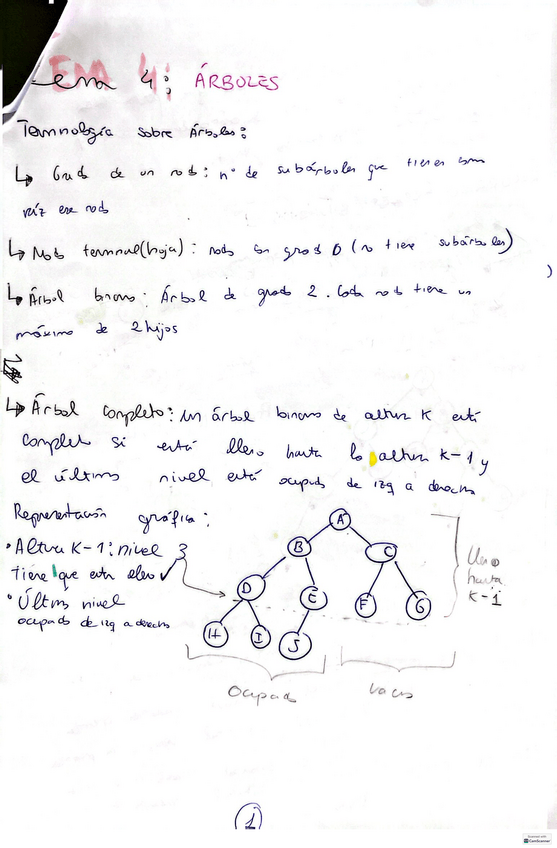 Tema 4: ÁRBOLES
Terminología sobre Árboles:
↳ Grado de un nodo: nº de subárboles que tienen como
raíz ese nodo
↳ Nodo terminal (hoja): nodo con grado 0 (no tiene subárboles)
↳ Árbol binario: Árbol de grado 2. Cada nodo tiene un
máximo de 2 hijos
↳ Árbol completo: un árbol binario de altura K está
completo si está lleno hasta la altura K-1 y
el último nivel está ocupado de izq a derecha
Representación gráfica:
• Altura K-1: nivel 3
tiene que estar lleno ✓
• Último nivel
ocupado de izq a derecha
A
B
C
D
E
F
G
H
I
J
lleno
hasta
K-1
Ocupado
vacío
1
Scanned with
CamScanner